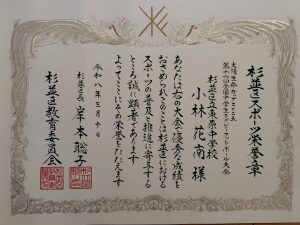 杉並区スポーツ栄誉章
杉並区立東原中学校
小林花南様
あなたは右の大会で優秀な成績を
おさめられこのことは杉並区における
スポーツの普及と推進に寄与する
ところ誠に顕著であります
よってここにその栄誉をたたえます
令和八年三月十日
杉並区長 岸本聡子
杉並区教育委員会